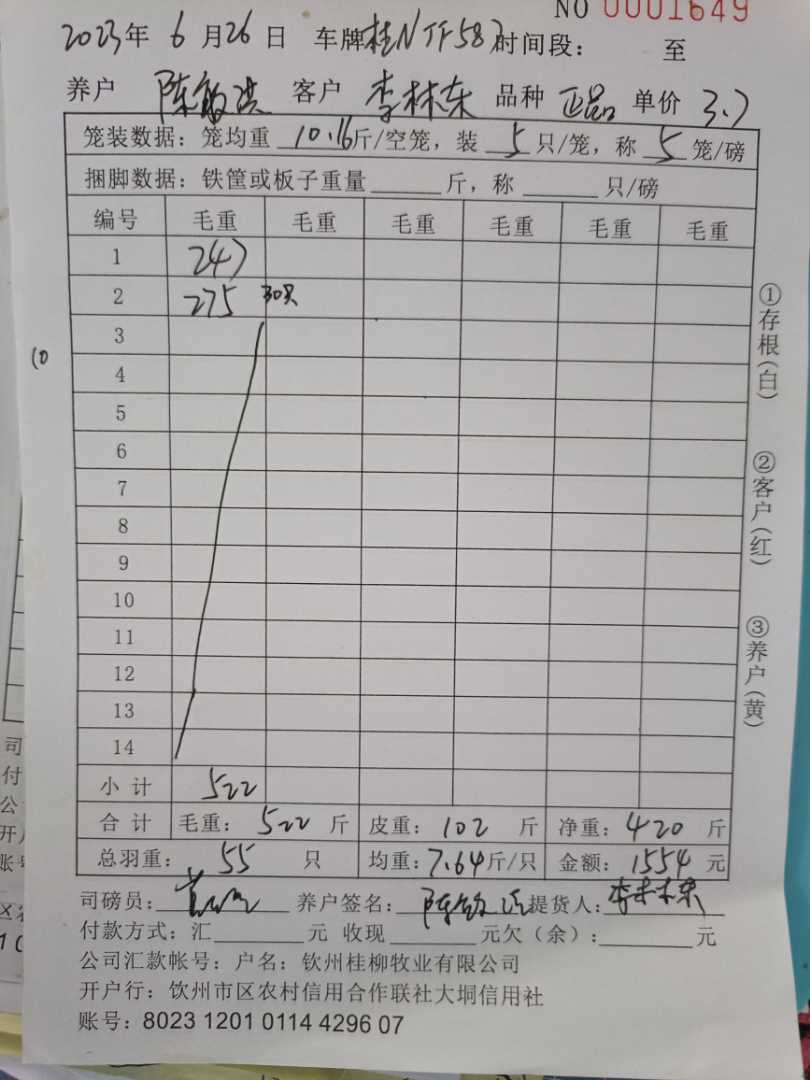 NO 0001649
2023年 6月26日 车牌桂NTF587时间段： 至
养户 陈敏洪 客户 李林东 品种 正品 单价 3.7
笼装数据：笼均重 10.16斤/空笼，装 5 只/笼，称 5 笼/磅
捆脚数据：铁筐或板子重量 斤，称 只/磅
编号 毛重 毛重 毛重 毛重 毛重 毛重
1 247
2 275 30只
3
4
5
6
7
8
9
10
11
12
13
14
小计 522
合计 毛重：522 斤 皮重：102 斤 净重：420 斤
总羽重：55 只 均重：7.64斤/只 金额：1554 元
司磅员： 养户签名：陈敏洪 提货人：李林东
付款方式：汇 元 收现 元欠（余）： 元
公司汇款帐号：户名：钦州桂柳牧业有限公司
开户行：饮州市区农村信用合作联社大垌信用社
账号：8023 1201 0114 4296 07
①存根（白）
②客户（红）
③养户（黄）
(10
司
付
公
开户
账